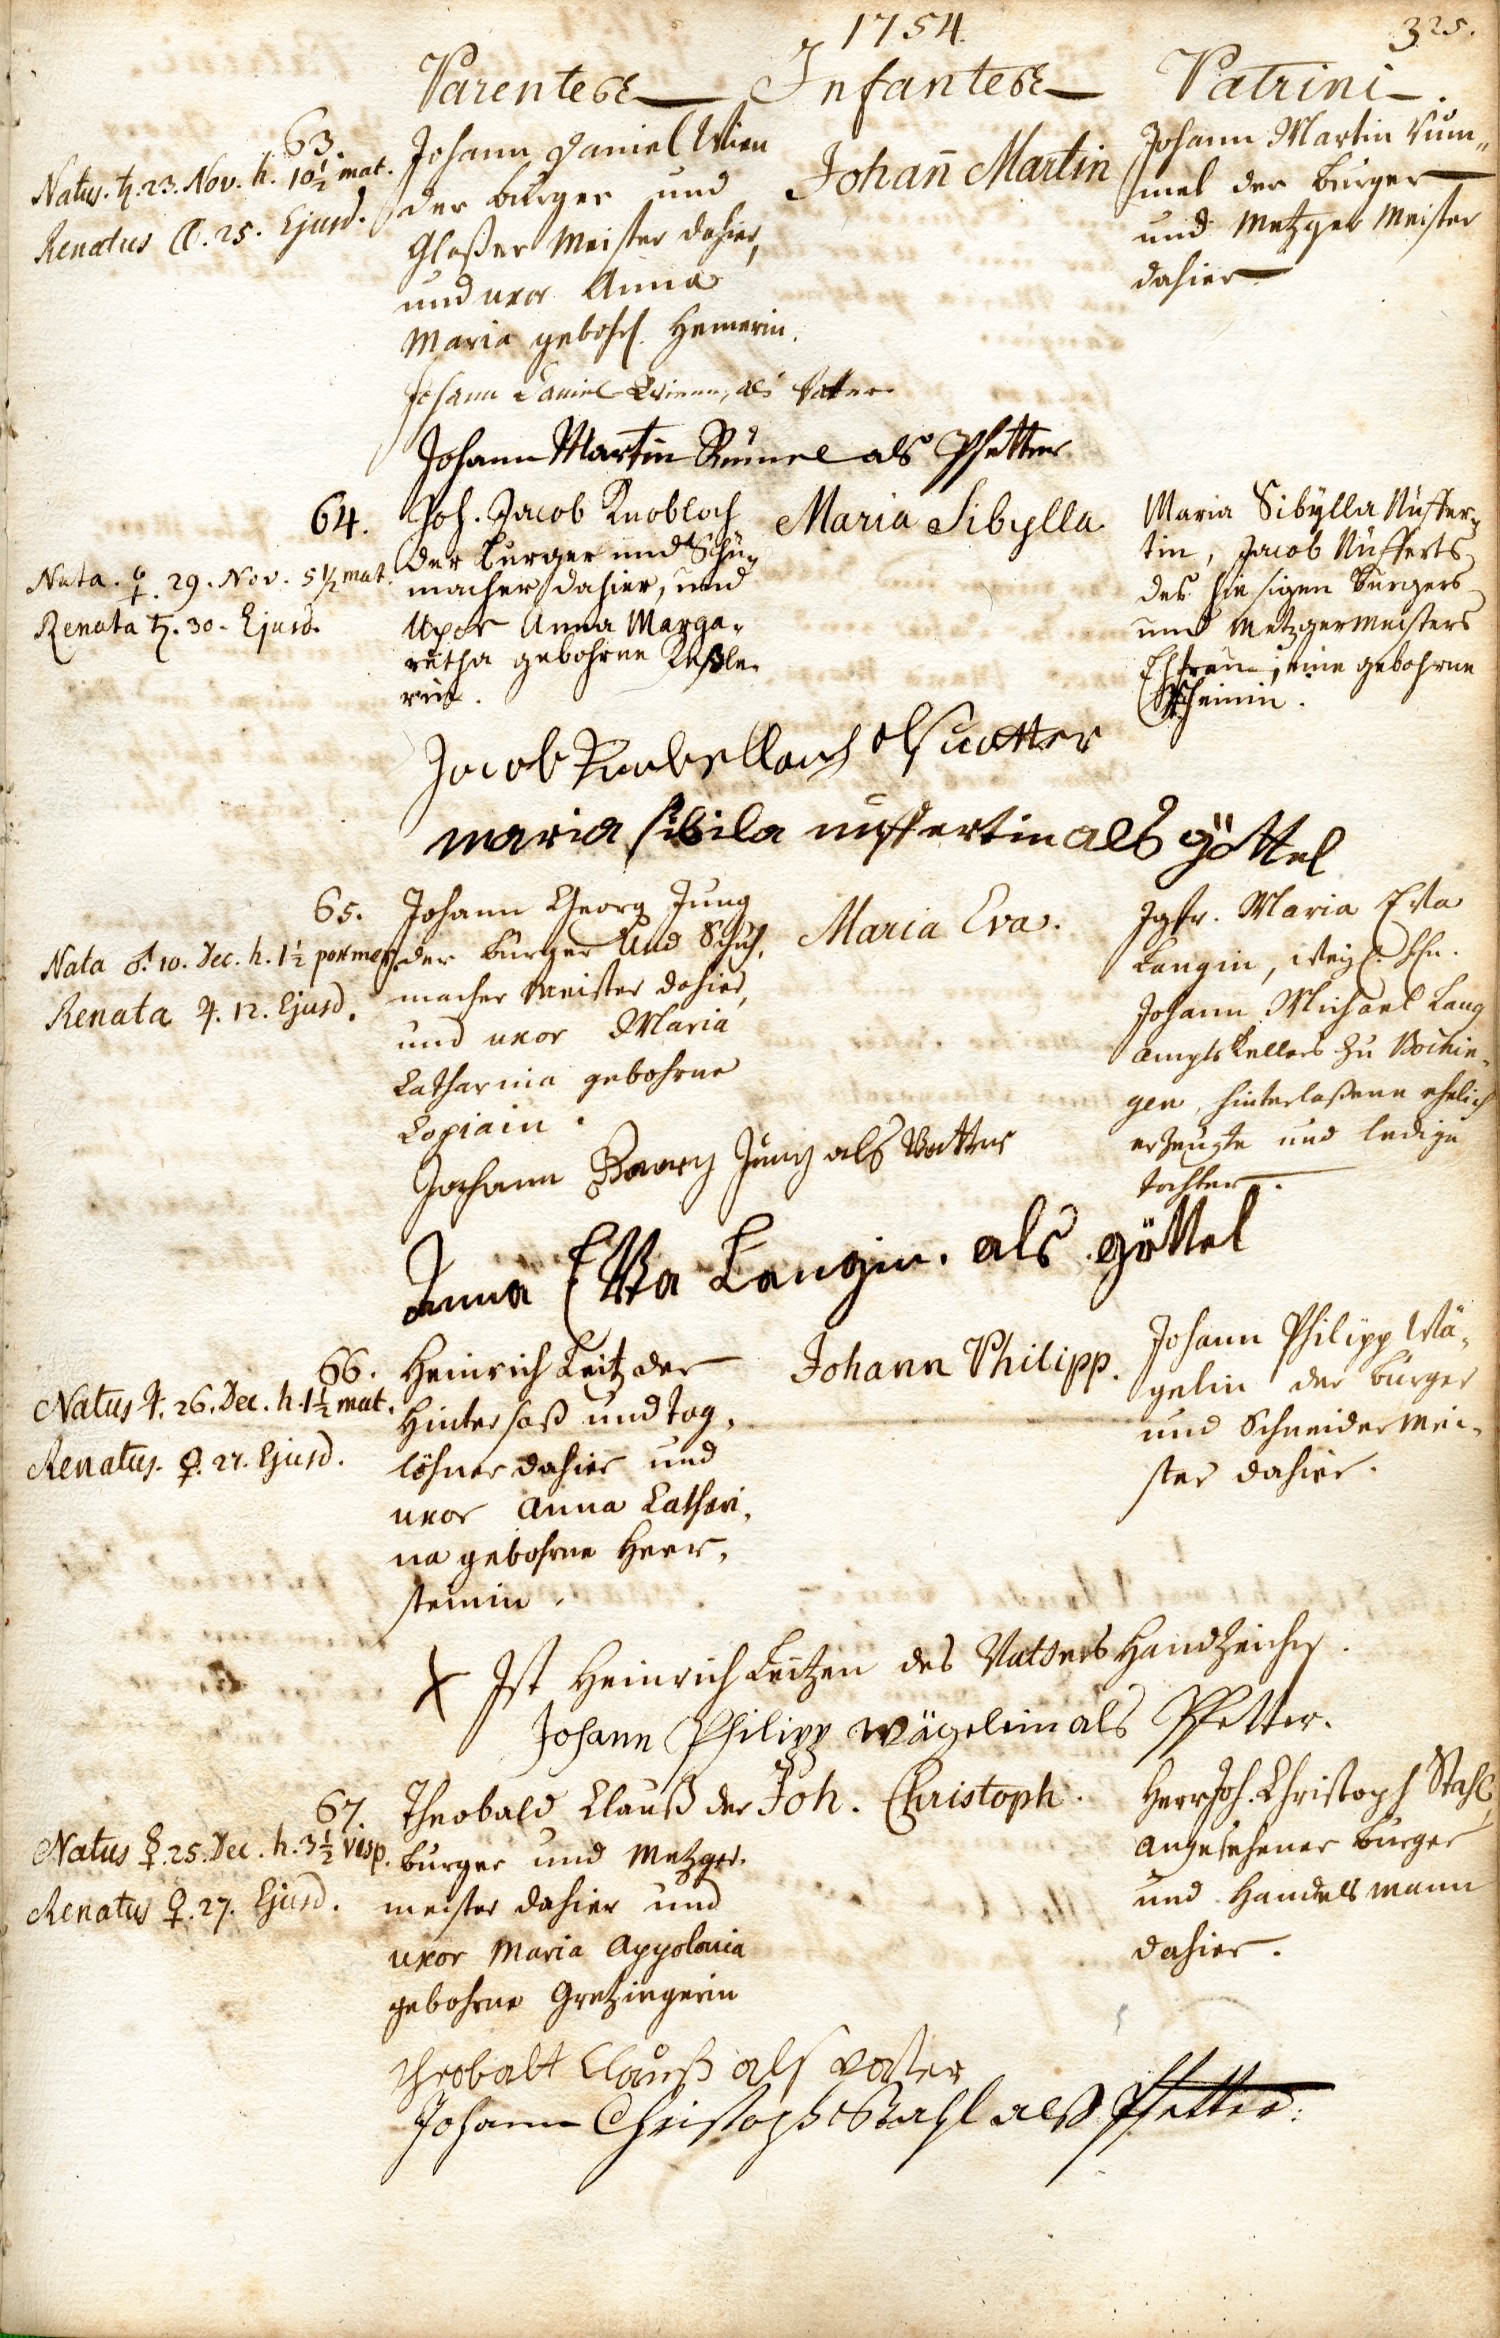 1754.
325.
Parentes Infantes Patrini.
63.
Natus. ♄. 23. Nov. h. 10½ mat.
Renatus ☾. 25. Ejusd.
Johann Daniel Wien
der burger und
Glaßer Meister dahier,
und uxor Anna
Maria gebohr. Hemerin.
Johann Martin
Johann Martin Rüm„
mel der burger
und Metzger Meister
dahier
Johann Daniel Wienn, als Vatter
Johann Martin Rümel als Pfetter
64.
Nata. ♀. 29. Nov. 5½ mat.
Renata ♄. 30. Ejusd.
Joh. Jacob Knobloch
der burger und Schü-
macher dahier, und
Uxor Anna Marga-
retha gebohrne Keßle-
rin.
Maria Sibylla
Maria Sibÿlla Nüffer-
tin, Jacob Nüfferts
des hiesigen burgers
und Metzgermeisters
Ehfrau, eine gebohrne
Jacob als vatter
maria sibila nuffertin als göttel
65.
Nata ♂. 10. Dec. h. 1½ post mer.
Renata ♃. 12. Ejusd.
Johann Georg Jung
der burger und Schuh,
macher Meister dahier,
und uxor Maria
Catharina gebohrne
Copiain.
Maria Eva.
Jgfr. Maria Eva
Langin, weyl. Hn.
Johann Michael Lang
ampts Kellers zu
gen, hinterlaßene ehelich
erzeugte und ledige
tochter.
Johann Georg Jung als Vatter
Anna Eva Langin. als göttel
66.
Natus ♃. 26. Dec. h. 1½ mat.
Renatus. ♀. 27. Ejusd.
Heinrich Leitz der
Hintersaß und tag,
löhner dahier und
uxor Anna Cathari,
na gebohrne Herr,
steinin.
Johann Philipp.
Johann Philipp Wä,
gelin der burger
und Schneider Mei,
ster dahier.
X Ist Heinrich Leitzen des Vatters Handzeichen.
Johann Philipp wägelein als Pfetter.
67.
Natus ☿. 25. Dec. h. 3½ vesp.
Renatus ♀. 27. Ejusd.
Theobald Clauß der
burger und Metzger,
meister dahier und
uxor Maria Appolonia
gebohrne Gretzingerin
Joh. Christoph.
Herr Joh. Christoph Stahl,
angesehener burger
und Handelsmann
dahier.
Theobalt Clauß als vater
Johann Christoph Stahl alß Pfetter.